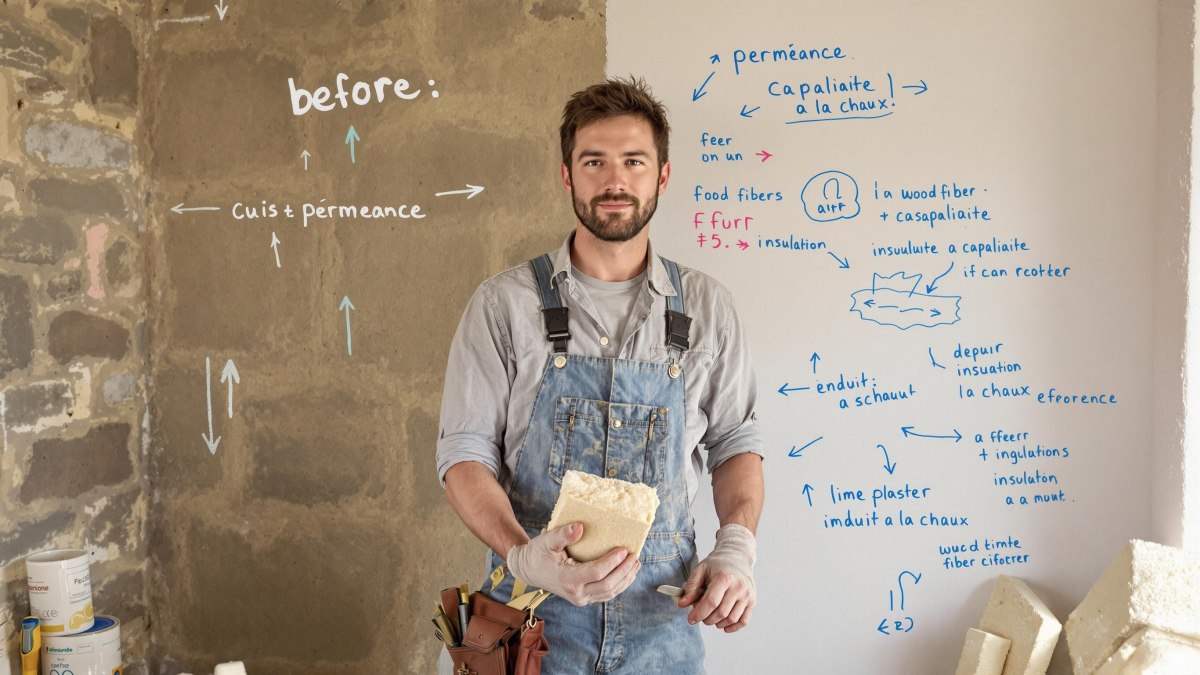 before:
cuis t pérmeance
perméance
capaliaite
a la chaux!
feer
on un
food fibers
F furr
airf
i a woodfiber.
+ casapaliaite
insulation
insuulute a capaliaite
if can rcotter
depuir
insuation
la chaux eforence
enduit:
a schauut
a ffeerr
+ ingulations
insulaton
a a muut.
lime plaster
imduit a la chaux
wucd timte
fiber cifotrer